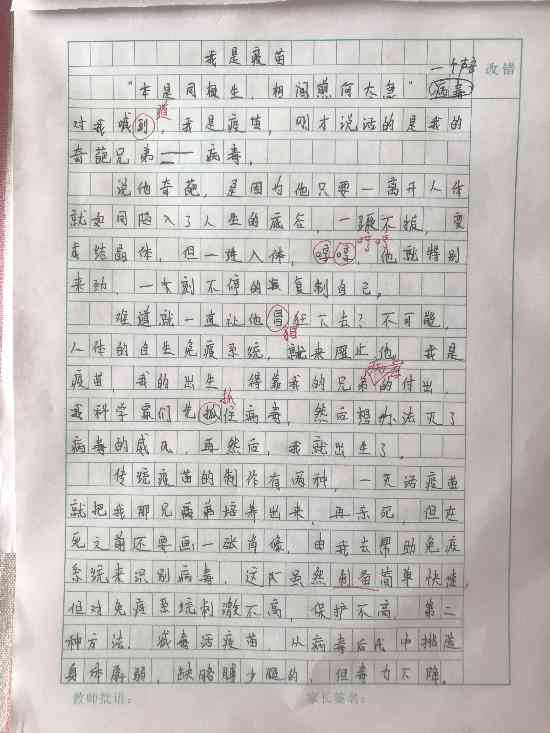 我是疫苗
一个声音 改错
"本是同根生,相间煎何太急" 病毒
道
对我喊到,我是疫苗,刚才说话的是我的
奇葩兄弟——病毒。
说他奇葩,是因为他只要一离开人体
就如同陷入了人生的底谷,一蹶不振,变
成结晶体,但一进入体,他就特别
来劲,一刻不停的复制自己。
难道就一直让他冒狂下去?不可能,
猖
人体的自生免疫系统,就来阻止他。我是
疫苗,我的出生,得靠我的兄弟的付出,
病毒
抓
我科学家们先抓住病毒,然后想办法灭了
病毒的威风,再然后,我就出生了。
传统疫苗的制作有两种,一灭活疫苗
就把我那兄弟培养出来,再杀死,但在
死之前还要画一张肖像,由我去帮助免疫
系统来识别病毒,这虽然制备简单快速,
但对免疫系统刺激不高,保护不高,第二
种方法,减毒活疫苗,从病毒后代中挑选
身体孱弱,缺胳膊少腿的,但毒力不降。
教师批语: 家长签名: